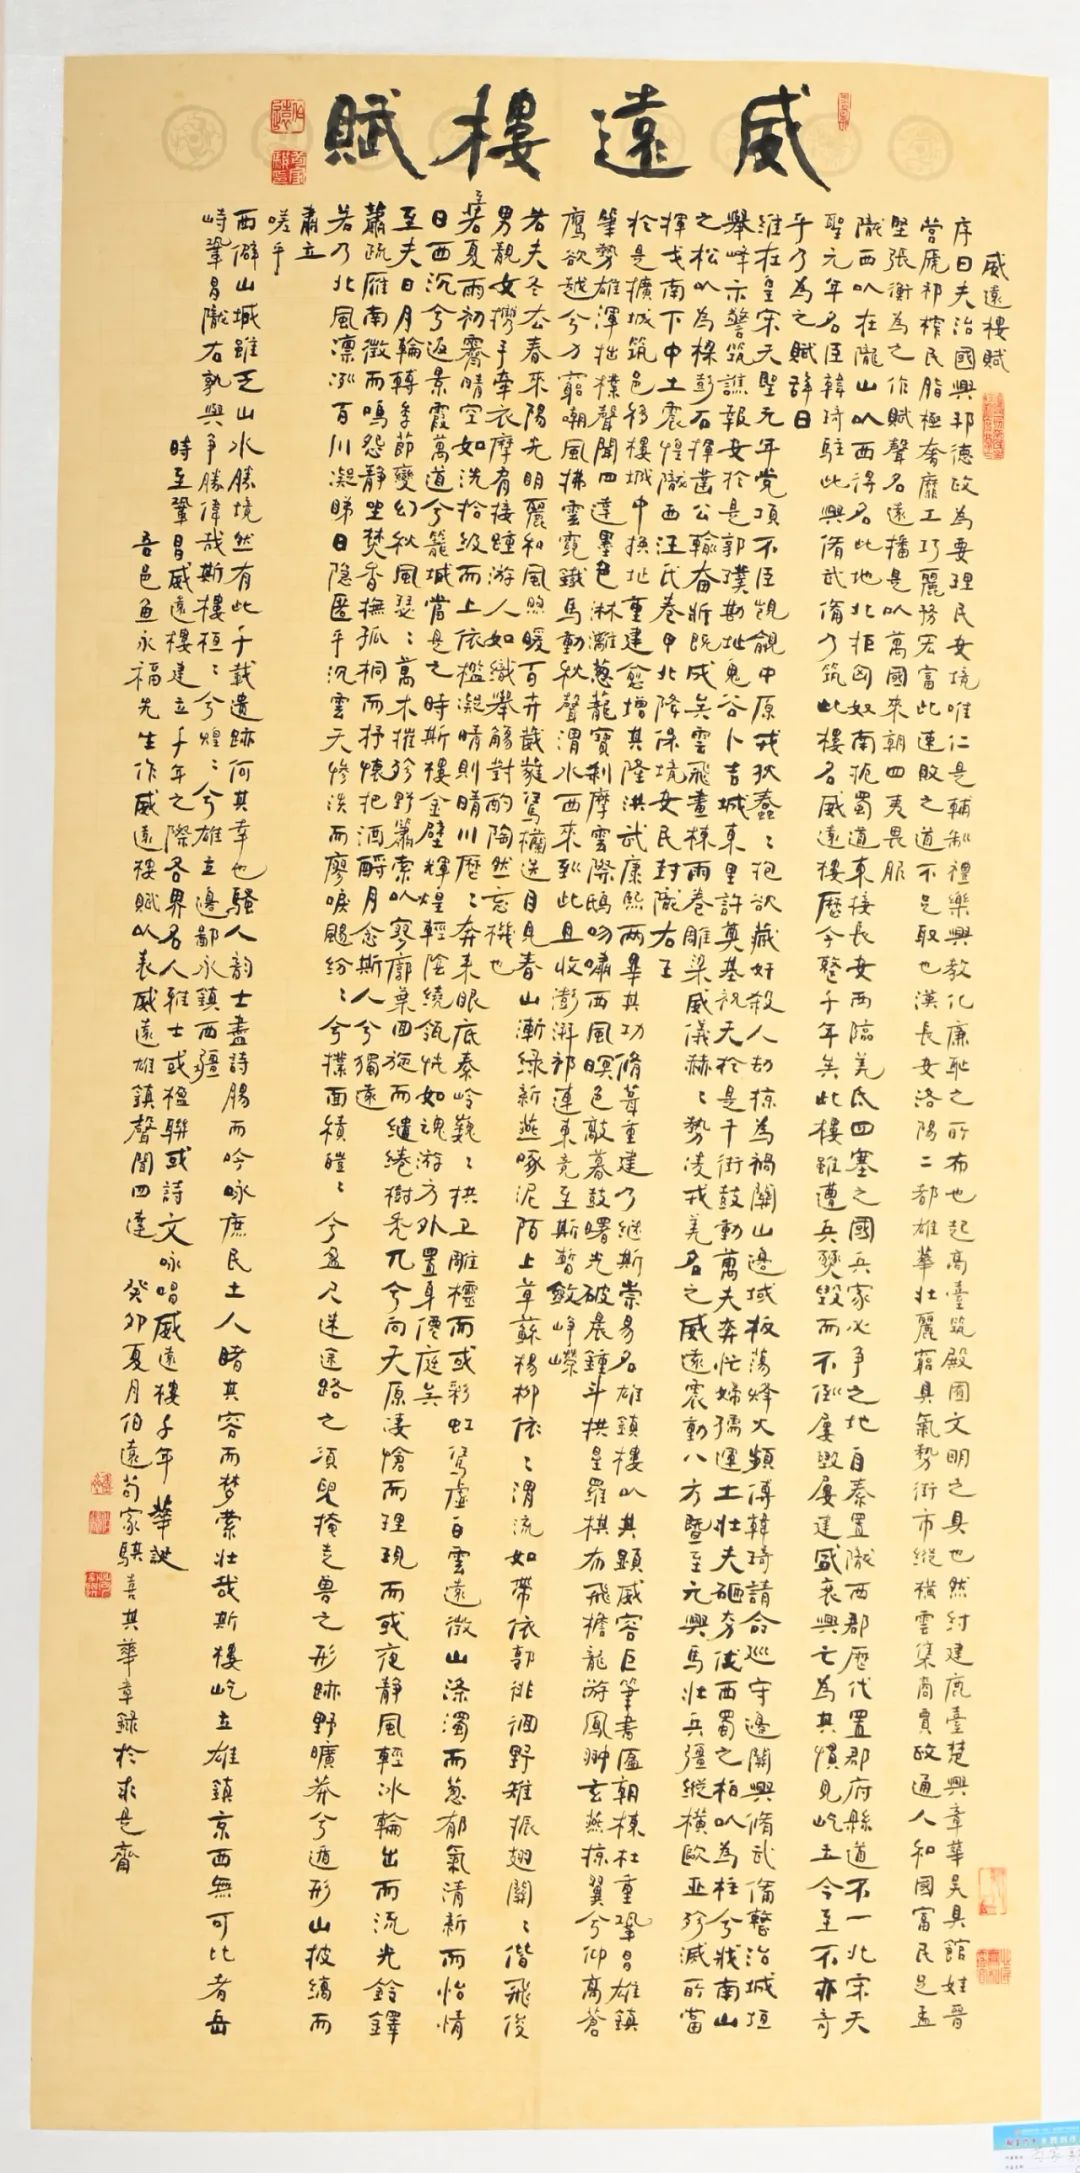 威遠樓賦
威遠樓賦
序曰夫治國興邦德政為要理民安境唯仁是輔制禮樂興教化廉恥之所布也起高臺筑殿囿文明之具也然紂建鹿臺楚興章華吳具館娃晉
營虒祁榨民脂極奢靡工巧麗務宏富此速敗之道不足取也漢長安洛陽二都雄華壯麗窮具氣勢街市縱橫雲集商賈政通人和國富民足孟
堅張衡為之作賦聲名遠播是以萬國來朝四夷畏服
隴西以在隴山以西得名此地北拒匈奴南扼蜀道東接長安西臨羌氐四塞之國兵家必爭之地自秦置隴西郡歷代置郡府縣道不一北宋天
聖元年名臣韓琦駐此興脩武備乃筑此樓名威遠樓歷今整千年矣此樓雖遭兵燹毀而不倒屢毀屢建盛衰興亡為其慣見屹立今至不亦奇
乎乃為之賦辭曰
維在皇宋天聖元年党項不臣覬覦中原戎狄蠢蠢抱欲藏奸殺人劫掠為禍關山邊域板蕩烽火頻傳韓琦請命巡守邊關興脩武備整治城垣
舉峰示警筑譙報安於是郭璞勘址鬼谷卜吉城東里許奠基祝天於是千街鼓動萬夫奔忙婦孺運土壯夫砸夯伐西蜀之柏以為柱兮戕南山
之松以為樑彭石揮凿公輸奮斨既成矣雲飛畫棟雨卷雕梁威儀赫赫勢凌戎羌名之威遠震動八方暨至元興馬壯兵彊縱橫歐亞殄滅所當
揮戈南下中土震惶隴西汪氏卷甲北降保境安民封隴右王
於是擴城筑邑移樓城中換址重建愈增其隆洪武康熙兩畢其功脩葺重建乃繼斯崇易名雄鎮樓以其顯威容巨筆書匾朝棟杜重鞏昌雄鎮
筆勢雄渾拙樸聲聞四達墨色淋灕蔥蘢寶剎摩雲際鴟吻嘯西風暝色敲暮鼓曙光破晨鍾斗拱星羅棋布飛檐龍游鳳翀玄燕掠翼兮仰高蒼
鹰欲越兮力窮嘲風拂雲霓鐵馬動秋聲渭水西來到此且收澎湃祁連東竞至斯暫斂崢嶸
若夫冬厺春來陽光明麗和風煦暖百卉葳蕤鴛欄送目見春山漸綠新燕啄泥陌上草蘇楊柳依依渭流如帶依郭徘徊野雉振翅關關偕飛俊
男靚女攜手牽衣摩肩接踵游人如織舉觴對酌陶然忘機也
至若夏雨初霽晴空如洗拾級而上依檻凝睛則晴川歷歷奔来眼底秦岭巍巍拱卫雕欞而或彩虹駕虛白雲遠微山滌濁而蔥郁氣清新而怡情
日西沉兮返景霞萬道兮籠城當是之時斯樓金壁輝煌輕陰繞領恍如魂游方外置身僊庭矣
至夫日月輪轉季節變幻秋風瑟瑟萬木摧殄野蕭索以寥廓菓回旋而繾綣樹禿兀兮向天原凄愴而理現而或夜靜風輕冰輪出而流光鈴鐸
蕭疏雁南徵而鳴怨靜坐焚香撫孤桐而抒懷把酒酹月念斯人兮獨遠
若乃北風凛冽百川凝睇日隐匿乎沉雲天慘淡而廖唳颸纷纷兮撲面積皚皚兮盈尺迷途路之須臾掩走兽之形跡野曠莽兮遁形山披縞而
肅立
嗟乎
西僻山城雖乏山水勝境然有此千載遺跡何其幸也騷人韵士盡詩腸而吟咏庶民土人睹其容而梦縈壯哉斯樓屹立雄鎮京西無可比者岳
峙鞏昌隴右孰與爭勝偉哉斯樓桓桓兮煌煌兮雄立邊鄙永鎮西疆
時至鞏昌威遠樓建立千年之際各界名人雅士或楹聯或詩文咏唱威遠樓千年華誕
吾邑魚永福先生作威遠樓賦以表威遠雄鎮聲聞四達 癸卯夏月伯遠苟家騏喜其華章錄於求是齋